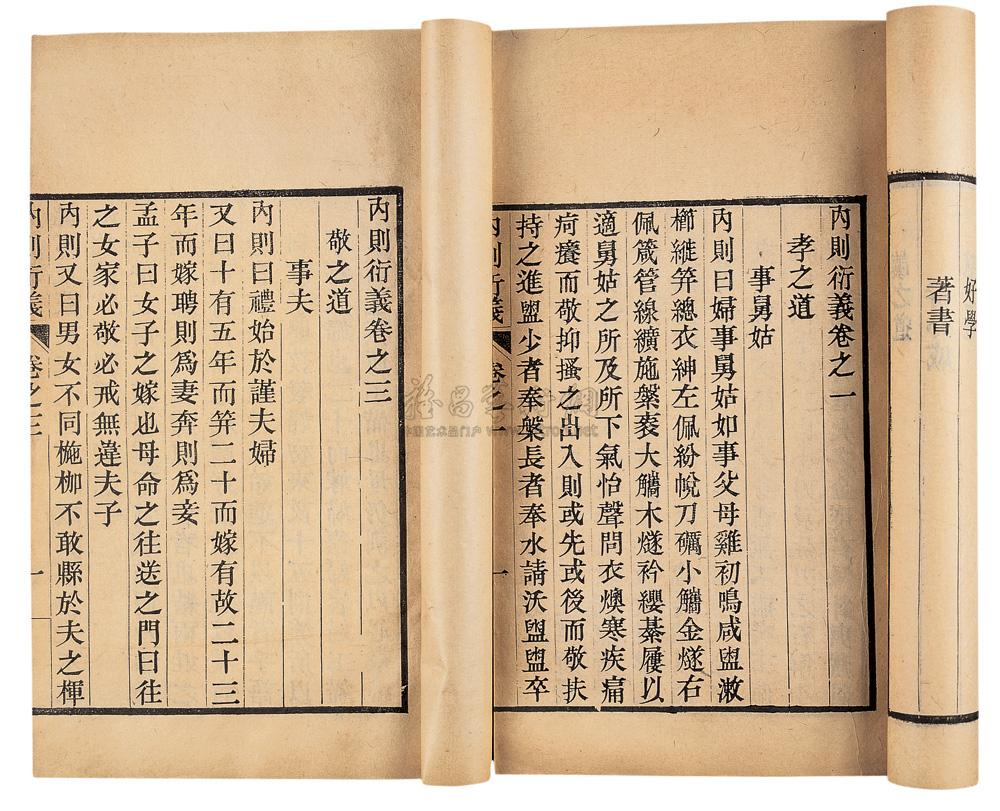 好學
著書
內則衍義卷之一
孝之道
事舅姑
內則曰婦事舅姑如事父母雞初鳴咸盥漱
櫛縰笄總衣紳左佩紛帨刀礪小觿金燧右
佩箴管線纊施縏袠大觿木燧衿纓綦屨以
適舅姑之所及所下氣怡聲問衣燠寒疾痛
疴癢而敬抑搔之出入則或先或後而敬扶
持之進盥少者奉槃長者奉水請沃盥盥卒
內則衍義 卷之一 一
內則衍義卷之三
敬之道
事夫
內則曰禮始於謹夫婦
又曰十有五年而笄二十而嫁有故二十三
年而嫁聘則為妻奔則為妾
孟子曰女子之嫁也母命之往送之門曰往
之女家必敬必戒無違夫子
內則又曰男女不同椸枷不敢縣於夫之楎
內則衍義 卷之三 一